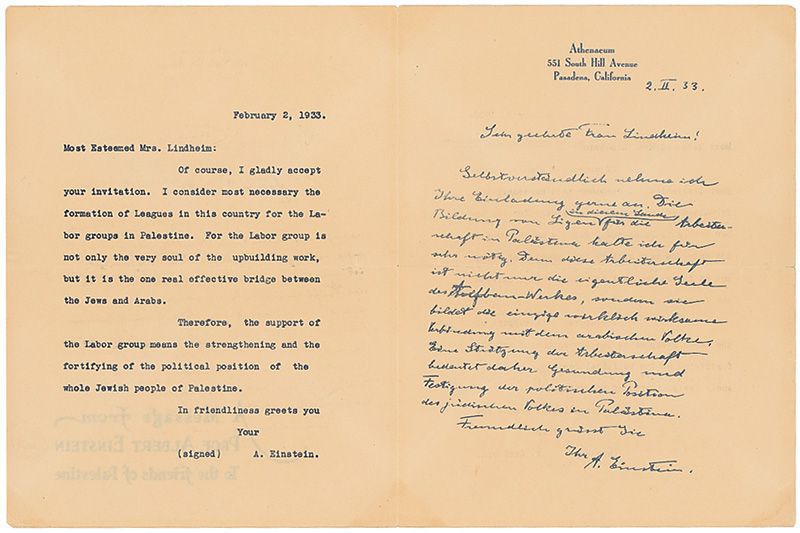 February 2, 1933.
Most Esteemed Mrs. Lindheim:
Of course, I gladly accept
your invitation. I consider most necessary the
formation of Leagues in this country for the La-
bor groups in Palestine. For the Labor group is
not only the very soul of the upbuilding work,
but it is the one real effective bridge between
the Jews and Arabs.
Therefore, the support of
the Labor group means the strengthening and the
fortifying of the political position of the
whole Jewish people of Palestine.
In friendliness greets you
Your
(signed) A. Einstein.
A Message from
Prof. Albert Einstein
To the friends of Palestine
Athenaeum
551 South Hill Avenue
Pasadena, California
2. II. 33.
Sehr geehrte Frau Lindheim!
Selbstverständlich nehme ich
Ihre Einladung gerne an. Die
in diesem Lande
Bildung von Ligen für die Arbeiter-
schaft in Palästina halte ich für
sehr nötig. Denn diese Arbeiterschaft
ist nicht nur die eigentliche Seele
des Aufbau-Werkes, sondern sie
bildet die einzige wirklich wirksame
Verbindung mit dem arabischen Volke.
Eine Stützung der Arbeiterschaft
bedeutet daher Gesundung und
Festigung der politischen Position
des jüdischen Volkes in Palästina.
Freundlich grüsst Sie
Ihr A. Einstein.